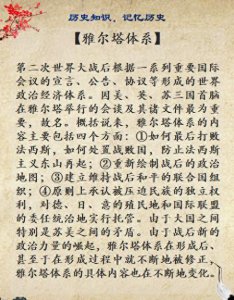 历史知识，记忆历史
【雅尔塔体系】
第二次世界大战后根据一系列重要国际
会议的宣言、公告、协议等形成的世界
政治经济体系。因美、英、苏三国首脑
在雅尔塔举行的会谈及其请文件最为重
要，故名。概括说来，雅尔塔体系的内
容主要包括四个方面：①如何最后打败
法西斯，如何处置战败国，防止法西斯
主义东山再起；②重新绘制战后的政治
地图；③建立维持战后和平的联合国组
织；④原则上承认被压迫民族的独立权
利，对德、日、意的殖民地和国际联盟
的委任统治地实行托管。由于大国之间
特别是苏美之间的矛盾。由于战后新的
政治力量的崛起，雅尔塔体系在形成后、
甚至于在形成过程中就不断地被修正，
雅尔塔体系的具体内容也在不断地变化。